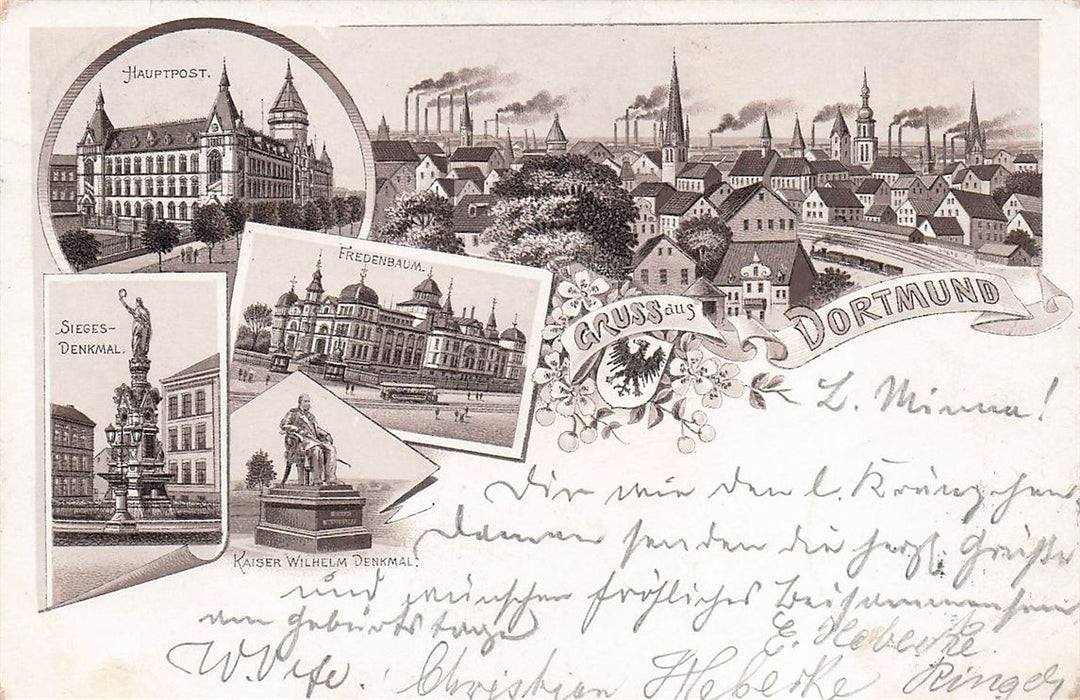 HAUPTPOST.
SIEGES-
DENKMAL.
FREDENBAUM.
KAISER WILHELM DENKMAL.
GRUSS aus
DORTMUND
L. Minna!
Dir wie den l. Kränzchen
damen senden die herzl. Grüße
und wünschen fröhliches Beisammensein
am Geburtstage
E. Hebecke.
W. Christian Hebecke